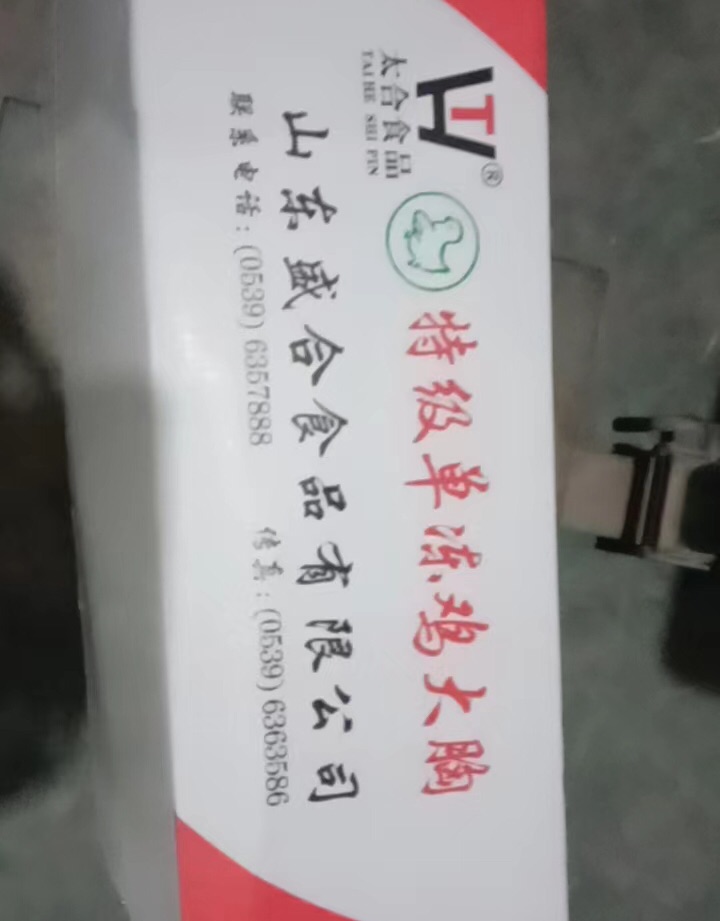 太合食品
TAI HE SHI PIN
®
特级单冻鸡大胸
山东盛合食品有限公司
联系电话：(0539) 6357888 传真：(0539) 6363586